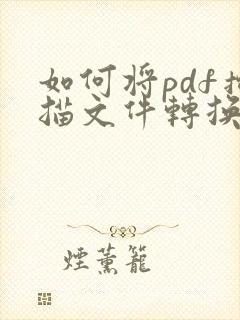 如何将pdf扫
描文件轉換
煙薰籠